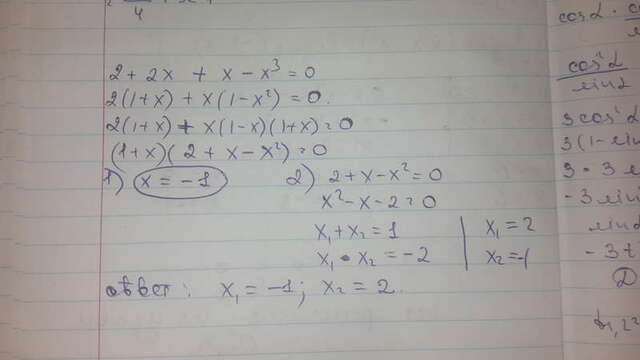 4
2 + 2x + x - x³ = 0
2(1+x) + x(1-x²) = 0.
2(1+x) + x(1-x)(1+x) = 0
(1+x)(2 + x - x²) = 0
1) x = -1 2) 2 + x - x² = 0
x² - x - 2 = 0
x₁ + x₂ = 1 | x₁ = 2
x₁ • x₂ = -2 | x₂ = -1
ответ: x₁ = -1; x₂ = 2.
cos α ·
cos² α
sin α
3 cos² α
3(1 -
- 3